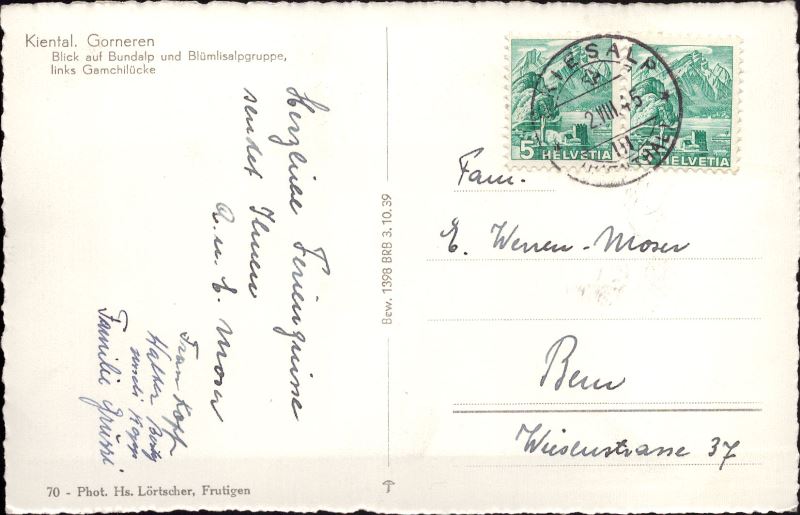 Kiental. Gorneren
Blick auf Bundalp und Blümlisalpgruppe,
links Gamchilücke
Herzliche Feriengrüsse
sendet Ihnen
A. u. E. Moser
Frau Kopp
Familie Grüssi
Bew. 1398 BRB 3.10.39
KIESALP
2.VIII.45
5 HELVETIA
HELVETIA
Fam.
E. Werren-Moser
Bern
Wiesenstrasse 37
70 - Phot. Hs. Lörtscher, Frutigen